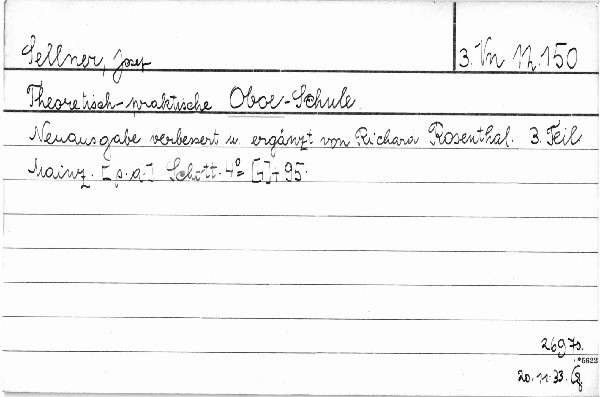 Sellner, Josef
3. Vn 12.150
Theoretisch-praktische Oboe-Schule.
Neuausgabe verbessert u. ergänzt von Richard Rosenthal. 3. Teil
Mainz. [s.a.] Schott. 4° [4]+95.
2697
*5622
20.11.33.